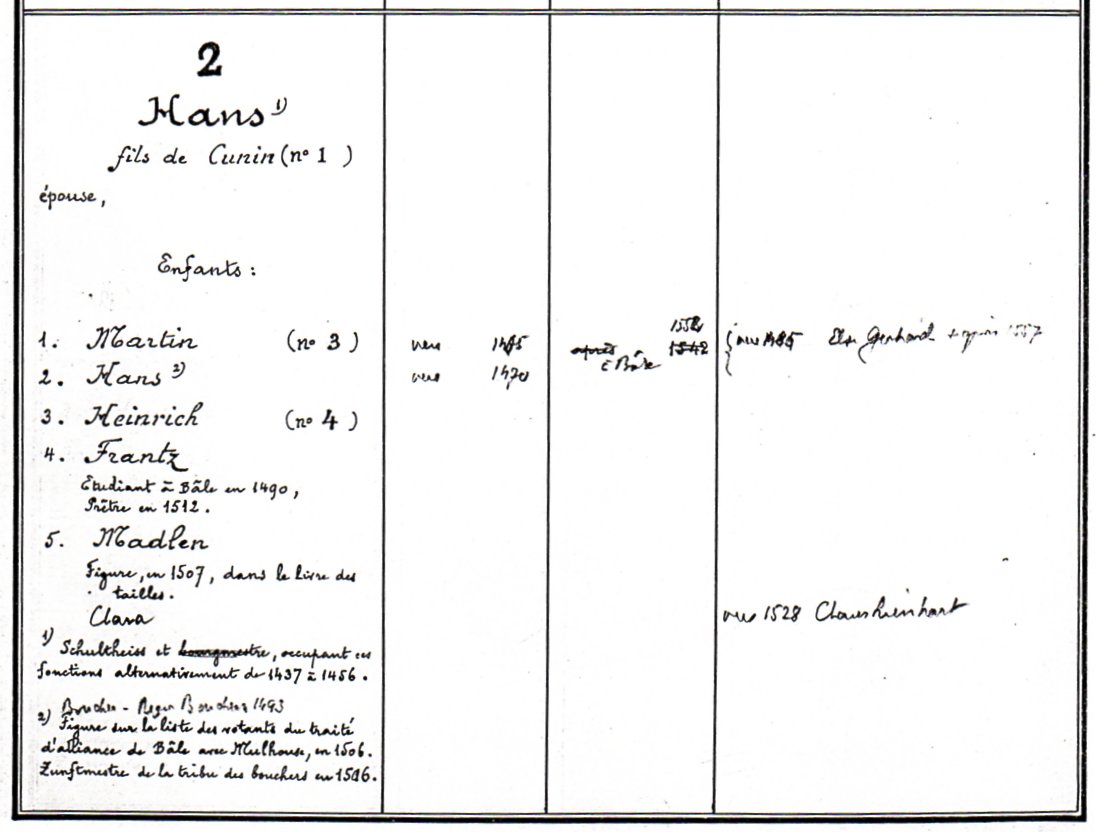 2
Hans 1)
fils de Cunin (nº 1 )
épouse,
Enfants :
1. Martin (nº 3 ) vers 1552
après 1542 { vers Else Gerhard + après 1557
à Bâle
2. Hans 2) vers 1470
3. Heinrich (nº 4 )
4. Frantz
Etudiant à Bâle en 1490,
Prêtre en 1512.
5. Madlen
Figure, en 1507, dans le livre des
tailles.
Clara vers 1528 Claus Leinhart
1) Schultheiss et bourgmestre, occupant ces
fonctions alternativement de 1437 à 1456.
Boucher - Boucher 1493
2) Figure sur la liste des votants du traité
d'alliance de Bâle avec Mulhouse, en 1506.
Zunftmestre de la tribu des bouchers en 1506.